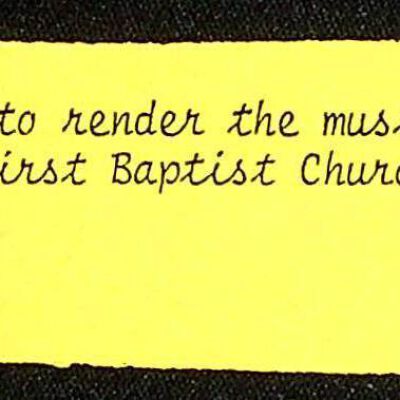 to render the mus
irst Baptist Churc